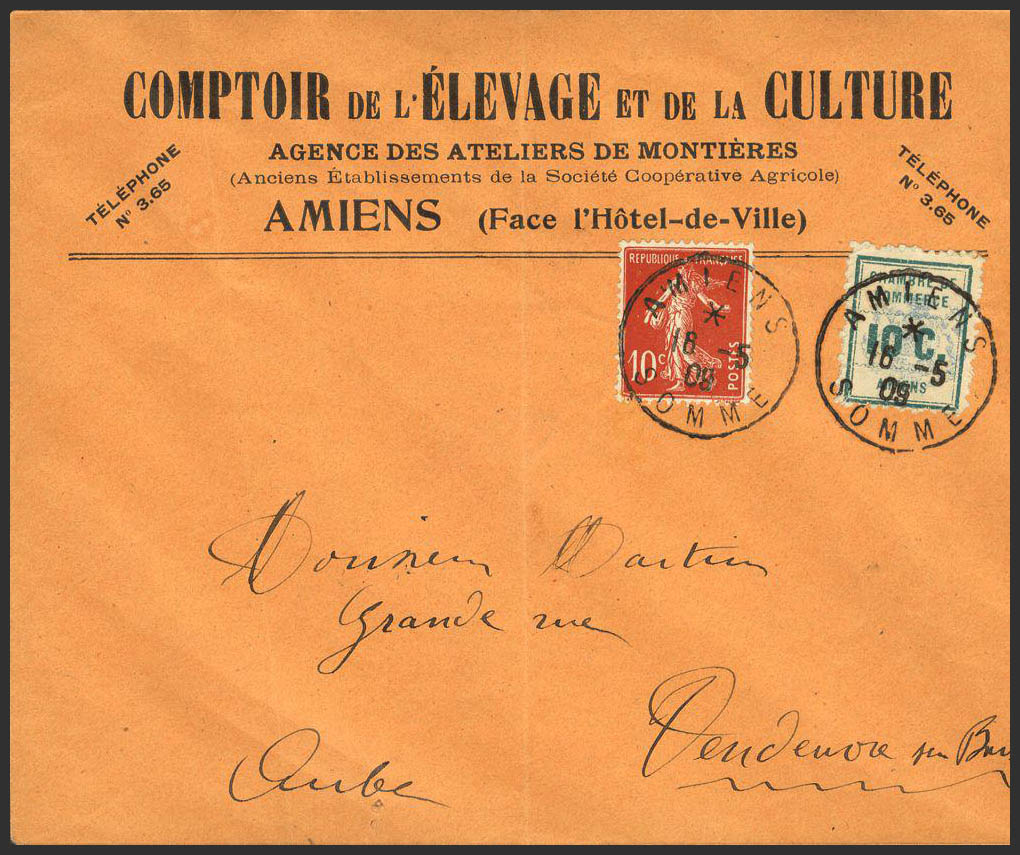 COMPTOIR DE L'ÉLEVAGE ET DE LA CULTURE
AGENCE DES ATELIERS DE MONTIÈRES
(Anciens Établissements de la Société Coopérative Agricole)
AMIENS (Face l'Hôtel-de-Ville)
TÉLÉPHONE
Nº 3.65
TÉLÉPHONE
Nº 3.65
REPUBLIQUE FRANÇAISE
10c
POSTES
AMIENS
16 -5
09
SOMME
CHAMBRE DE
COMMERCE
10 C.
AMIENS
AMIENS
16 -5
09
SOMME
Monsieur Martin
Grande rue
Vendeuvre sur
Aube